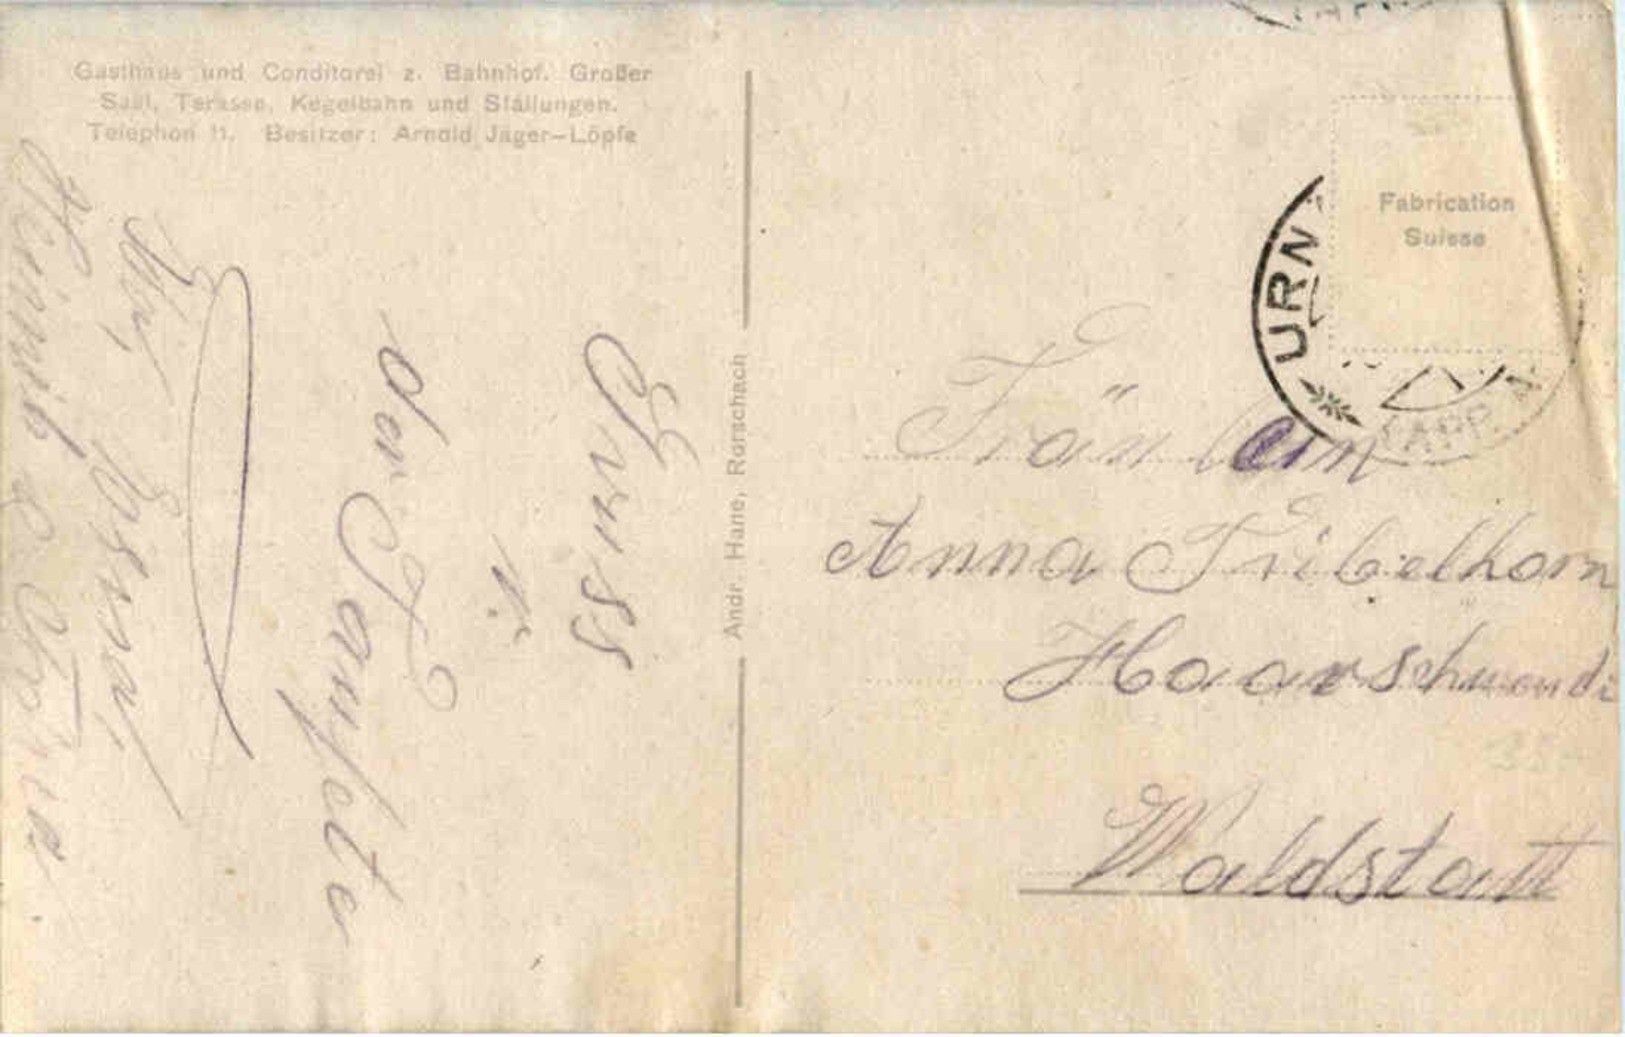 Gasthaus und Conditorei z. Bahnhof. Großer
Saal, Terasse, Kegelbahn und Stallungen.
Telephon 11. Besitzer: Arnold Jäger-Löpfe
Gruss
v.
der Taufete
Andr. Hane, Rorschach
Fabrication
Suisse
URN
APP
Fräulein
Anna Tribelhorn
Haarschwendi
Waldstatt